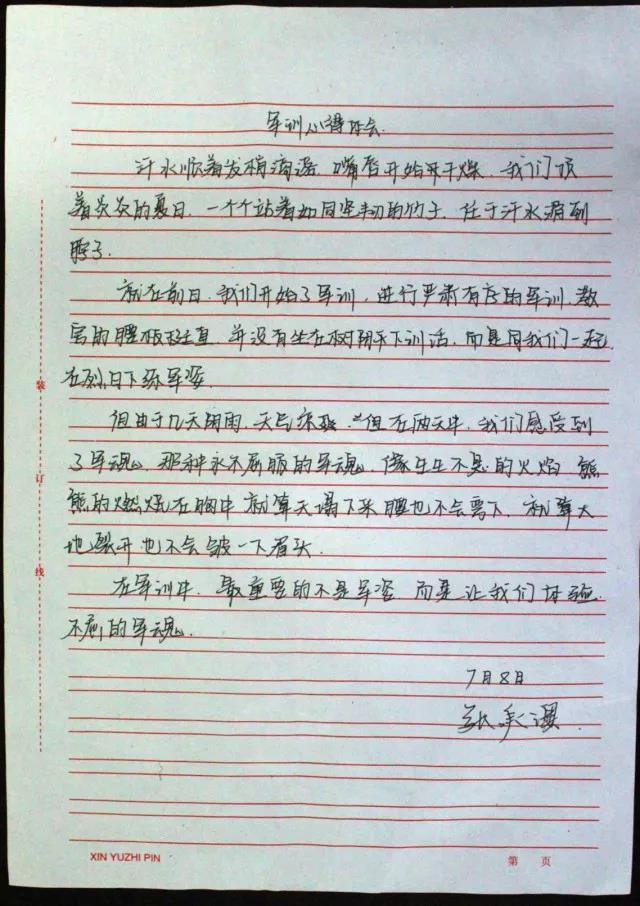 军训心得体会
汗水顺着发梢滴落 嘴唇开始开干燥，我们顶
着炎炎的夏日，一个个站着如同坚韧的竹子，任于汗水漏到
脖子.
就在前日，我们开始了军训，进行严肃有序的军训，教
官的腰板挺直，并没有坐在树阴下训话，而是同我们一起
在烈日下练军姿.
但由于几天阴雨，天气 但在两天中，我们感受到
了军魂，那种永不屈服的军魂，像生生不息的火焰 熊
熊的燃烧在胸中 就算天塌下来腰也不会弯下，就算大
地裂开也不会皱一下眉头.
在军训中，最重要的不是军姿 而是让我们体验
不屈的军魂.
7月8日
张
装
订
线
XIN YUZHI PIN
第 页